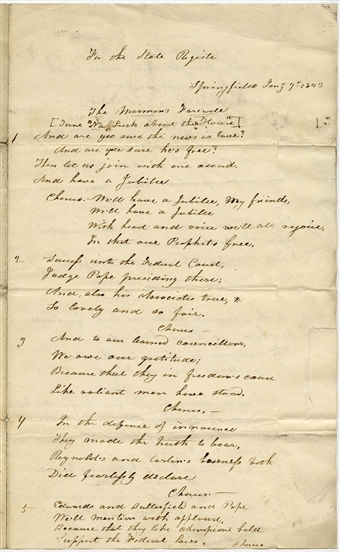 For the State Register
Springfield Jany 7th 1843
The Mormons Farewell
[Tune "No Luck about the House"]
1 And are ye sure the news is true?
And are ye sure he's free?
Then let us join with one accord.
And have a Jubilee
Chorus.- We'll have a Jubilee, My friends,
We'll have a Jubilee
With heart and voice we'll all rejoice,
In that our Prophet's free.
2 Success unto the Federal Court,
Judge Pope presiding there;
And, also his Associates true,
So lovely and so fair.
Chorus -
3 And to our learned councillors,
We owe our gratitude;
Because that they in freedom's cause
Like valiant men have stood.
Chorus, -
4 In the defence of innocence
They made the truth to bear,
Reynold's and Carlin's baseness both
Did fearlessly declare
Chorus -
5 - Edwards and Butterfield and Pope
We'll mention with applause,
Because that they like champions bold
Support the Federal laws.
Chorus